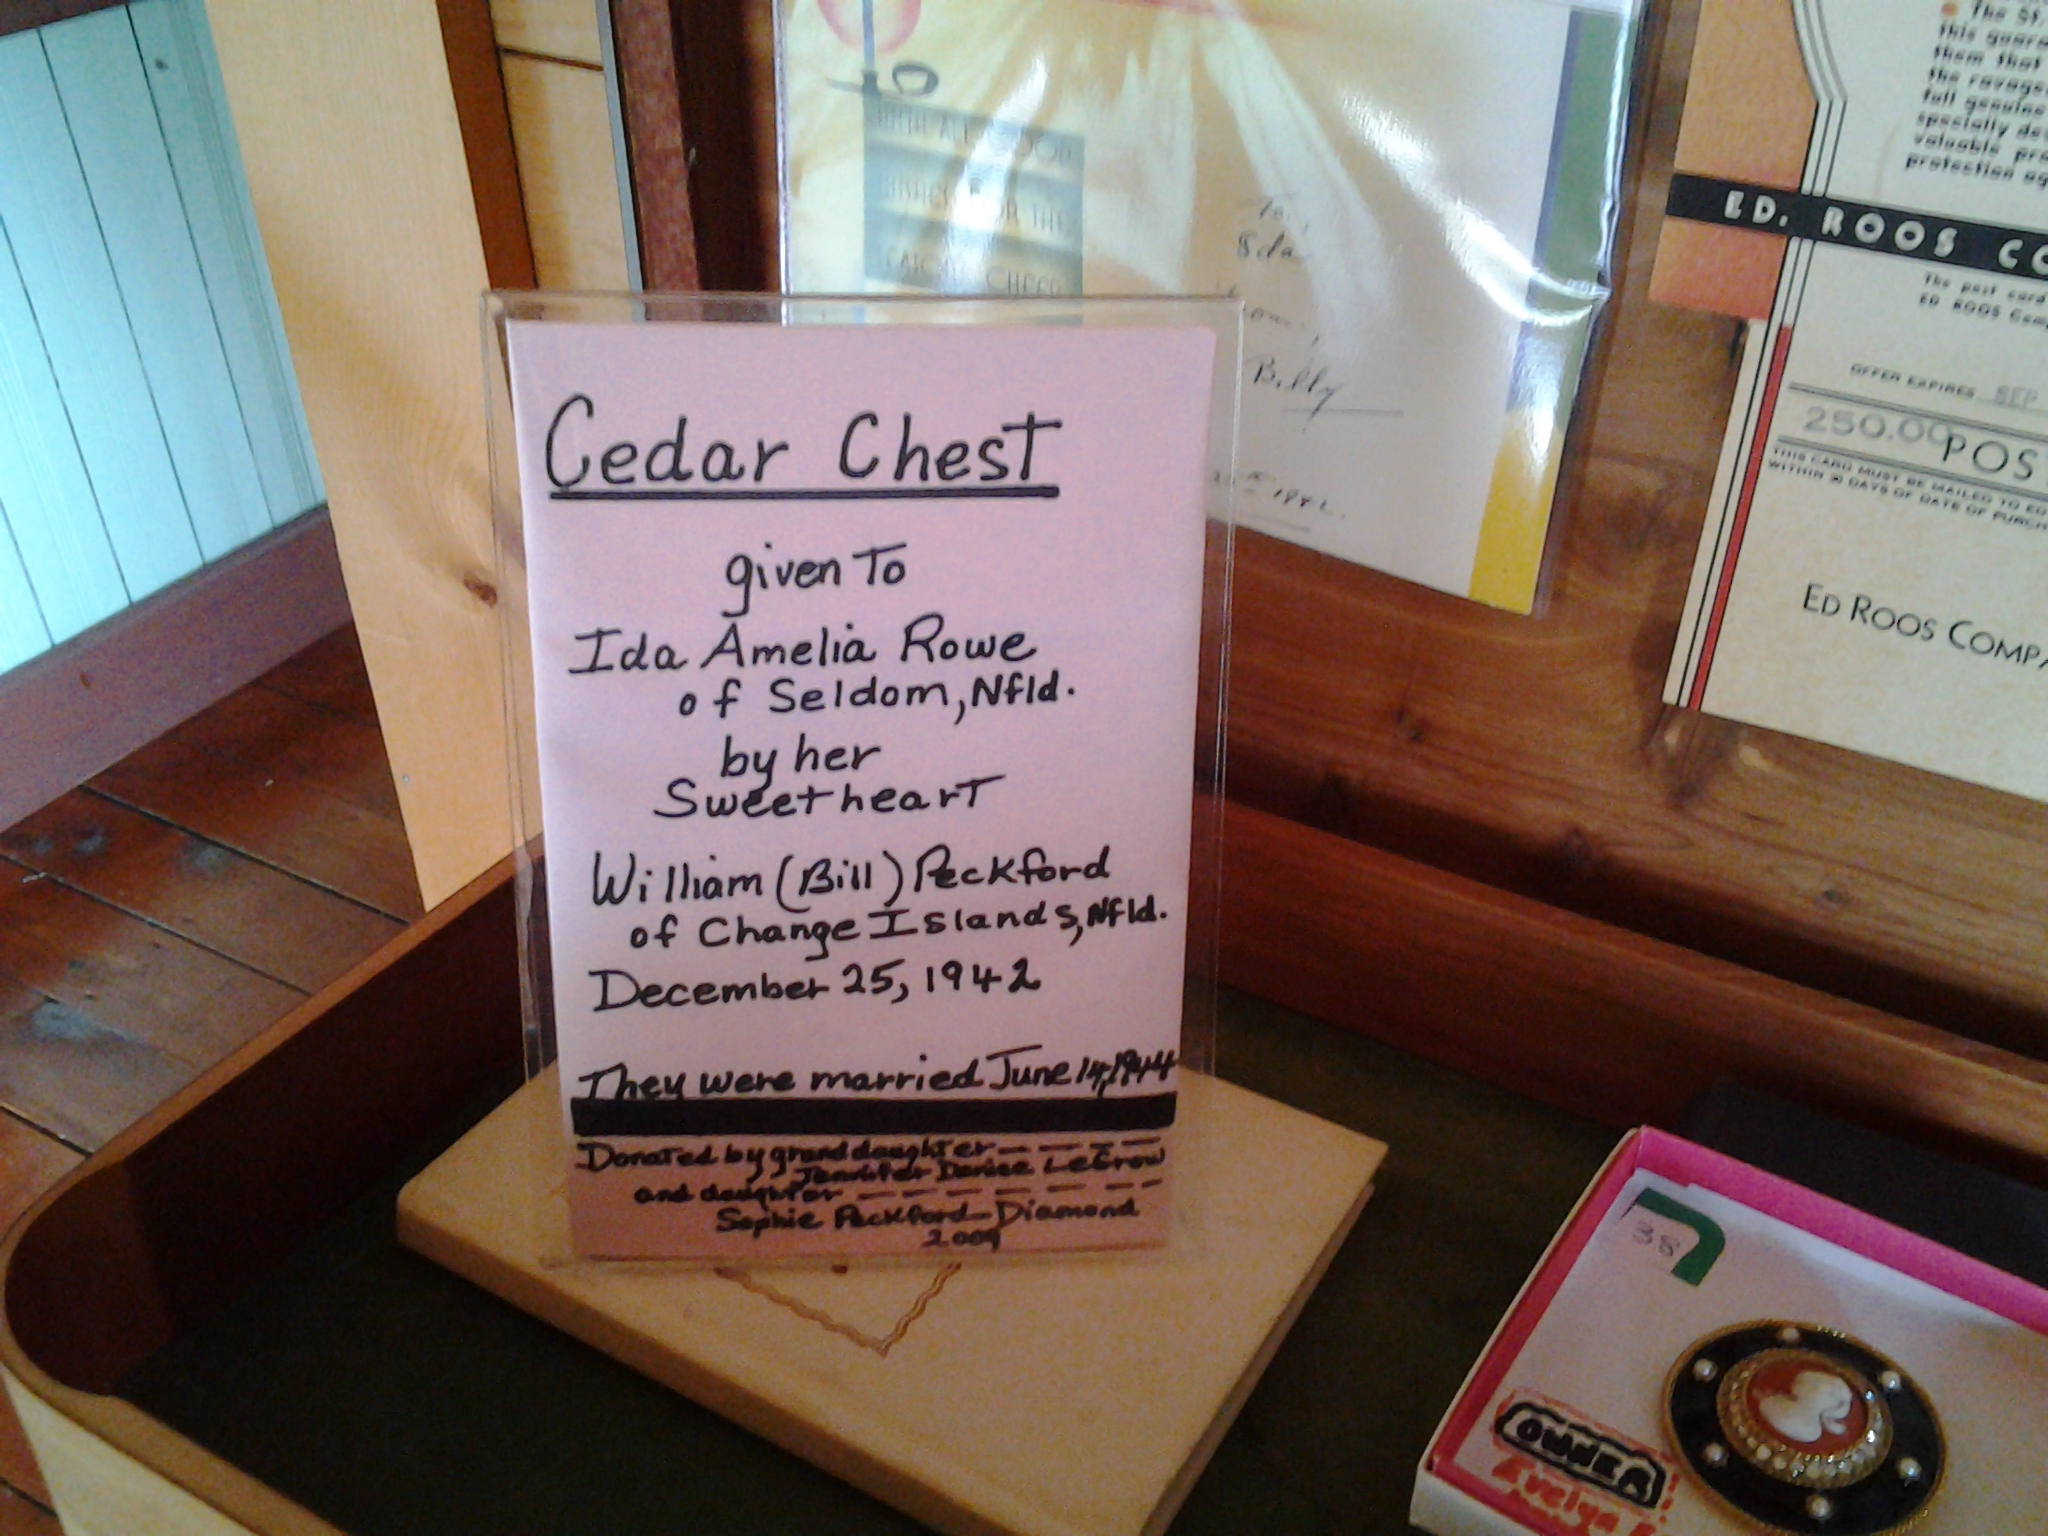 Cedar Chest
given To
Ida Amelia Rowe
of Seldom, Nfld.
by her
Sweetheart
William (Bill) Peckford
of Change Islands, Nfld.
December 25, 1942
They were married June 14, 1944
Donated by granddaughter
Jennifer Denise LeGrow
and daughter
Sophie Peckford-Diamond
2009
WITH A
FOR THE
CHEER
To,
Ida
Billy
The St.
this guara
them that
the ravage
full genuine
specially de
valuable pro
protection ag
ED. ROOS CO
The post card
ED ROOS Comp
OFFER EXPIRES SEP
250.00 POST
THIS CARD MUST BE MAILED TO ED
WITHIN 30 DAYS OF DATE OF PURCH
ED ROOS COMPA
38
OWNER
Evelyn